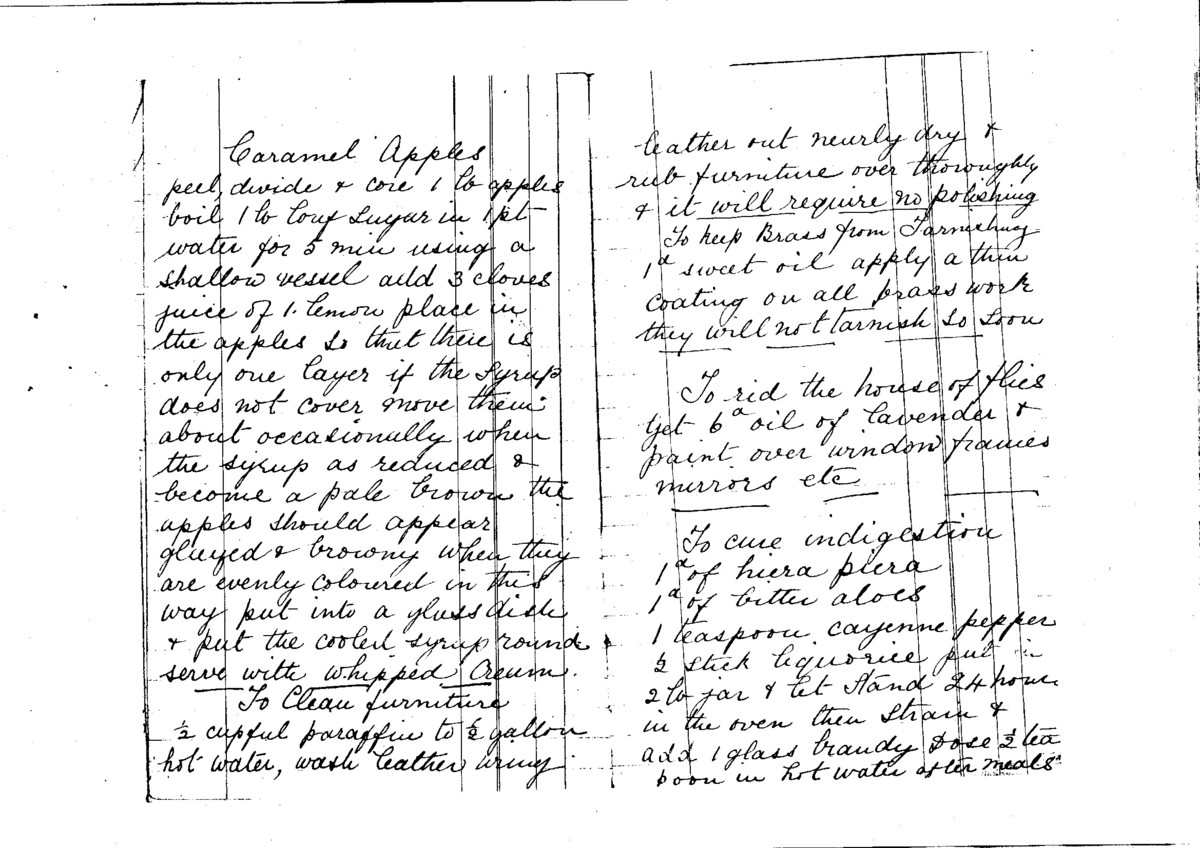 Caramel Apples
peel, divide & core 1 lb apples
boil 1 lb loaf sugar in 1 pt
water for 5 min using a
shallow vessel add 3 cloves
juice of 1. lemon place in
the apples so that there is
only one layer if the syrup
does not cover move them
about occasionally when
the syrup as reduced &
become a pale brown the
apples should appear
glazed & browny when they
are evenly coloured in this
way put into a glass dish
& put the cooled syrup round
serve with whipped Cream.
To Clean furniture
½ cupful paraffin to ½ gallon
hot water, wash leather wring
leather out nearly dry &
rub furniture over thoroughly
& it will require no polishing
To keep Brass from Tarnishing
1d sweet oil apply a thin
coating on all brass work
they will not tarnish so soon
To rid the house of flies
get 6d oil of lavender &
paint over window frames
mirrors etc
To cure indigestion
1d of hiera picra
1d of bitter aloes
1 teaspoon cayenne pepper
½ stick liquorice put in
2 lb jar & let stand 24 hours
in the oven then strain &
add 1 glass brandy Dose ½ tea
spoon in hot water after meals